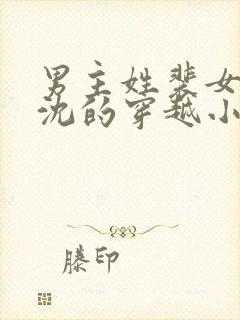 男主姓裴女
沈的穿越小
滕印